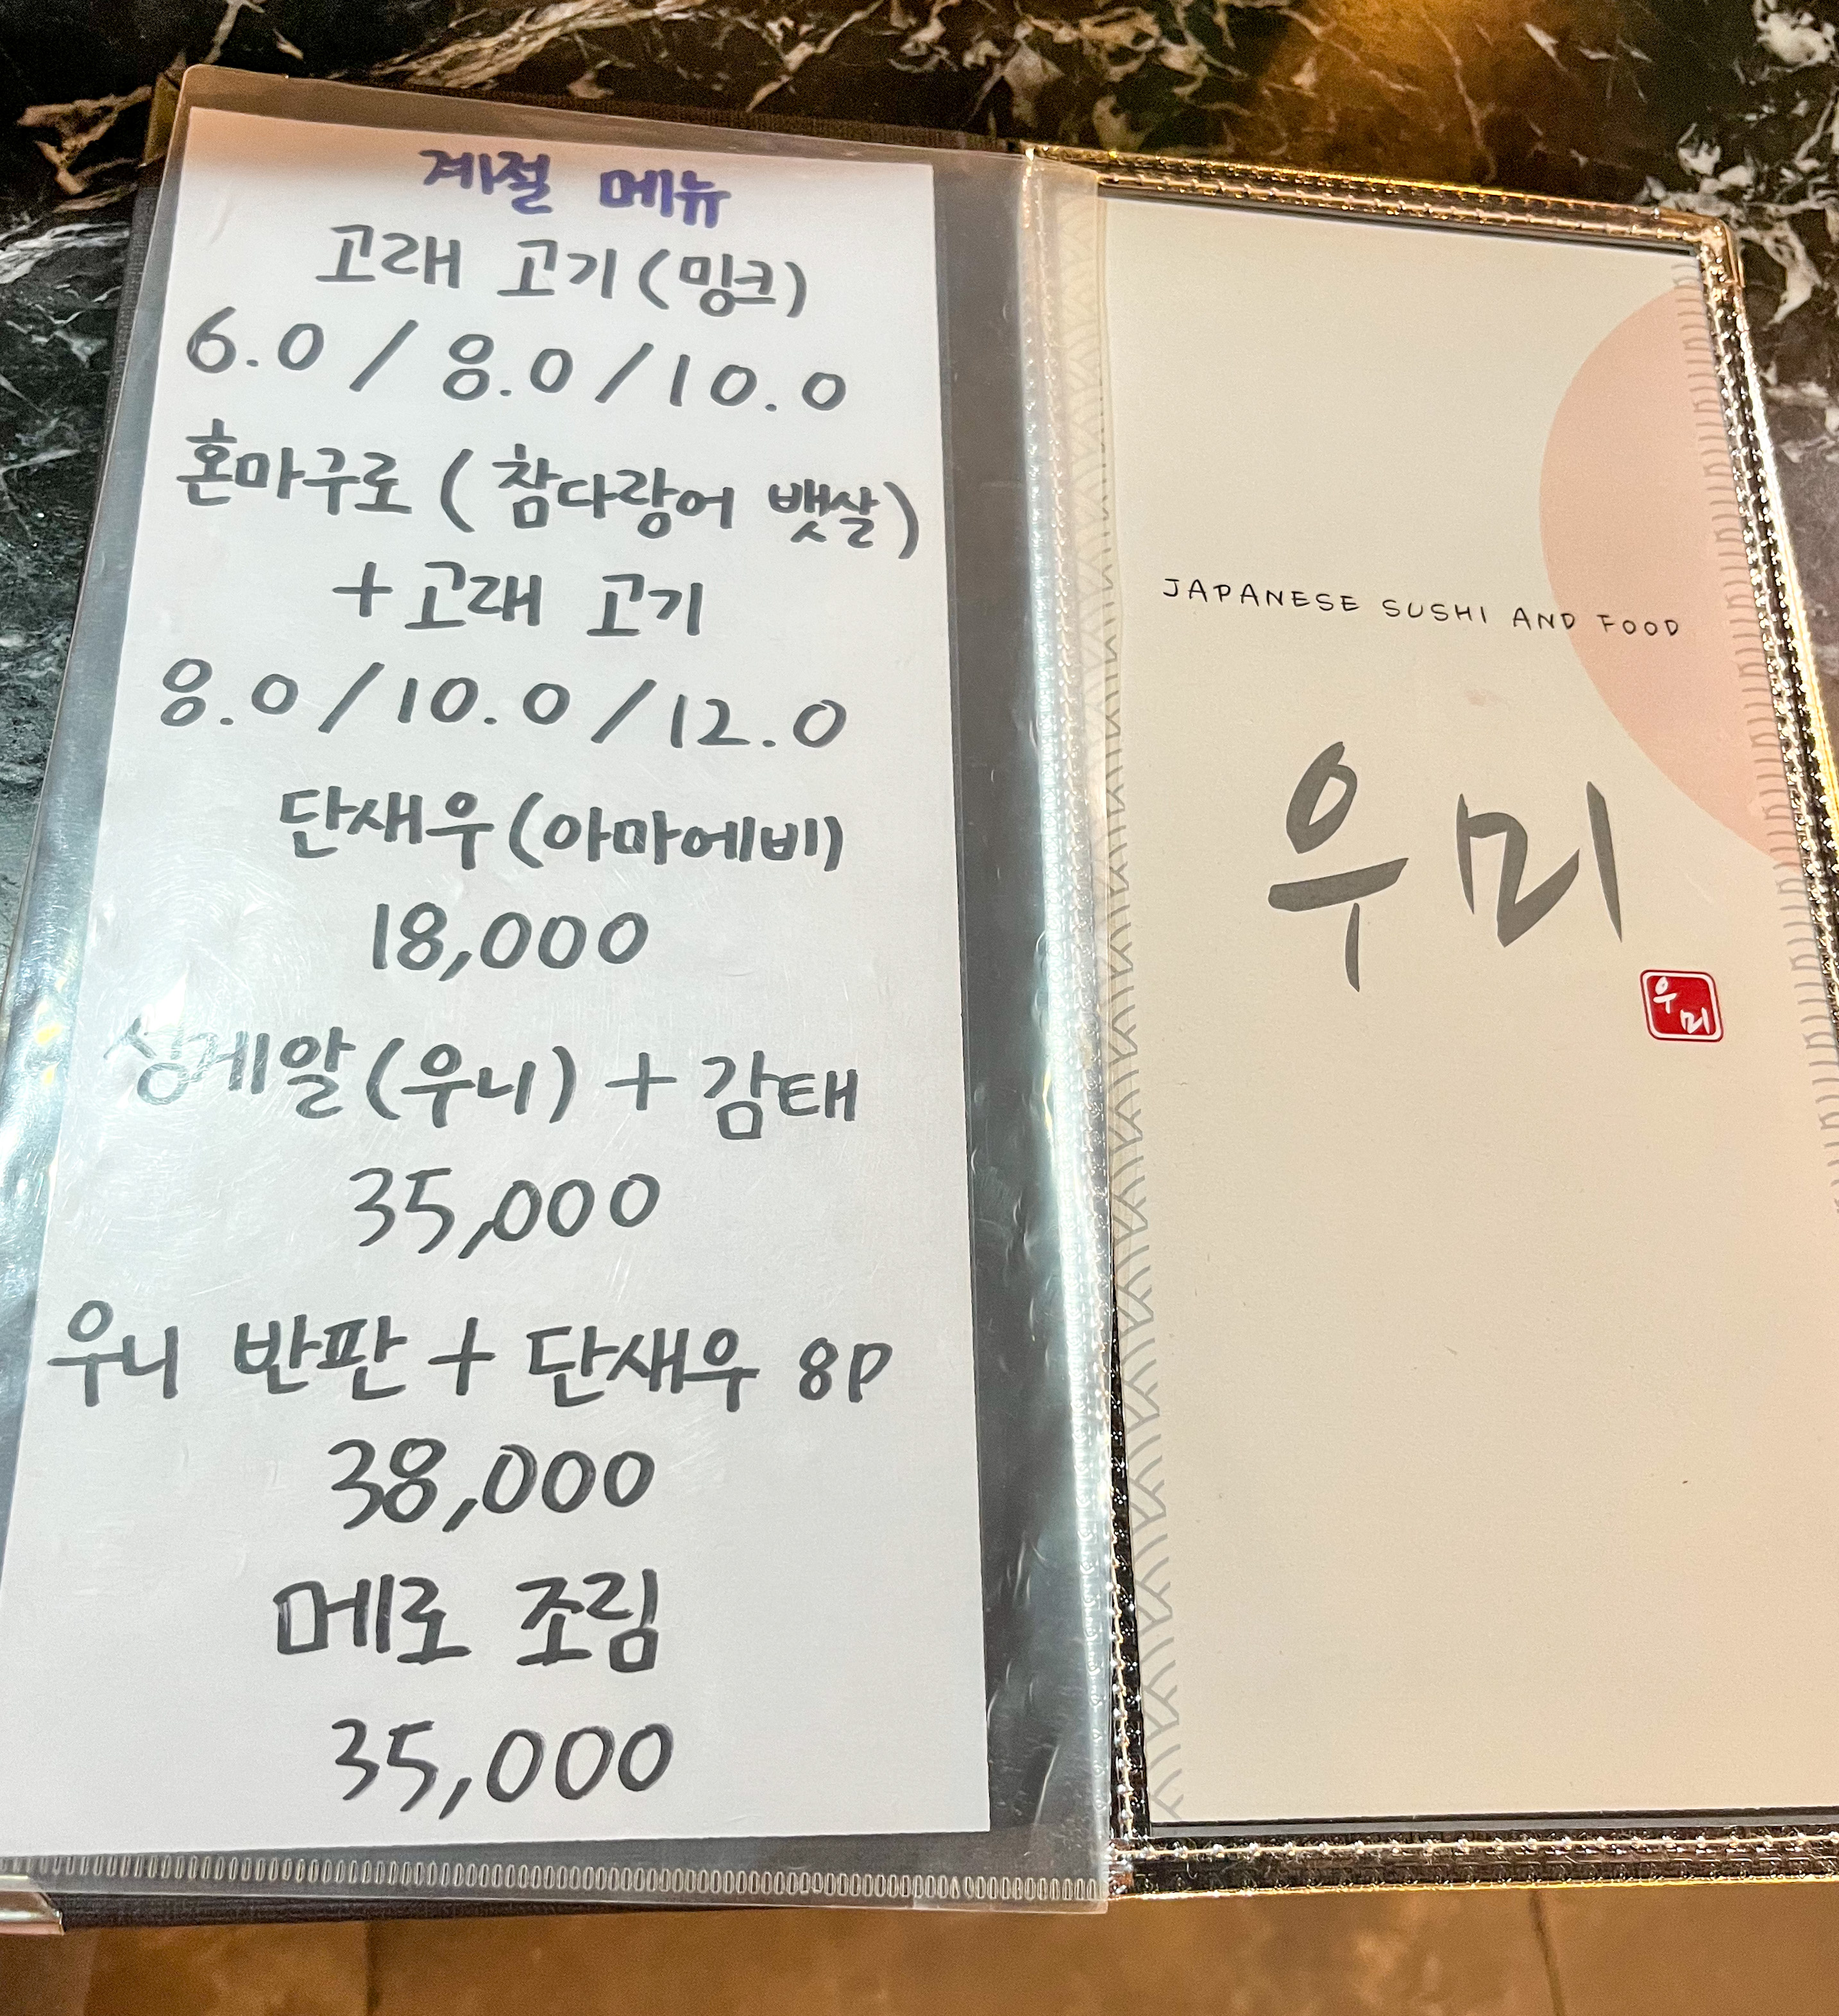 계절 메뉴
고래 고기(밍크)
6.0 / 8.0 / 10.0
혼마구로 (참다랑어 뱃살)
+ 고래 고기
8.0 / 10.0 / 12.0
단새우(아마에비)
18,000
성게알(우니) + 감태
35,000
우니 반판 + 단새우 8P
38,000
메로 조림
35,000
JAPANESE SUSHI AND FOOD
우미
우미